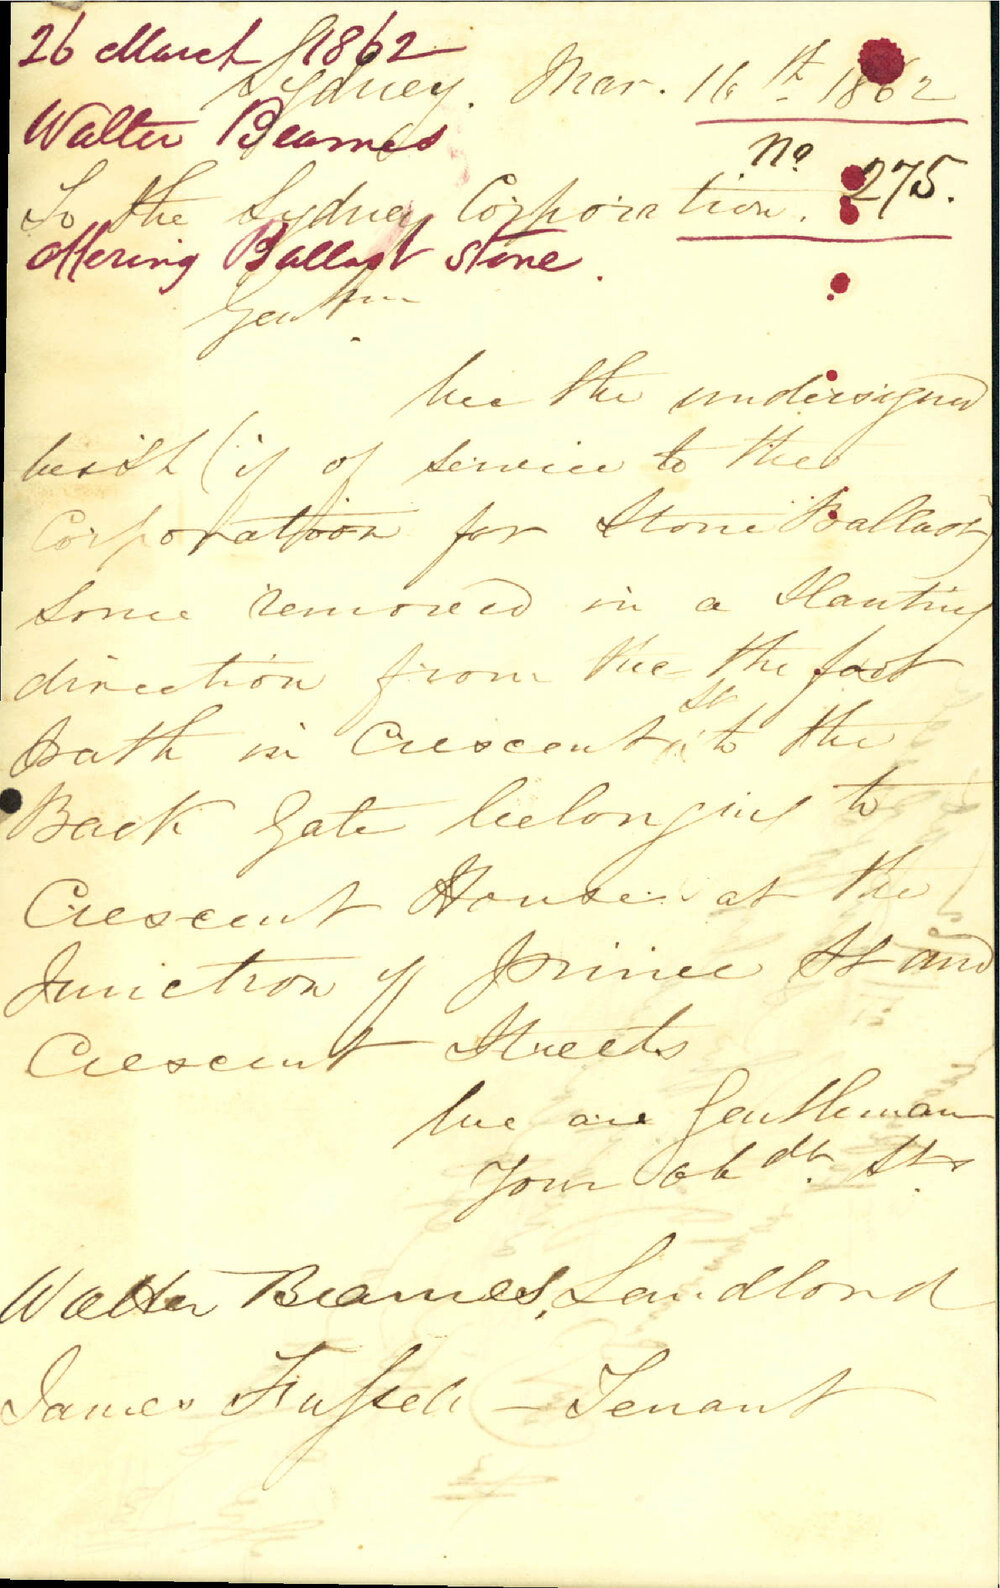 26 March 1862
Sydney. Mar. 16th 1862
Walter Beames
No 275.
To the Sydney Corporation.
Offering Ballast Stone.
Gentmn
We the undersigned
wish (if of service to the
Corporation for Stone Ballast)
some removed in a Slanting
direction from the the foot
path in Crescent St to the
Back Gate belonging to
Crescent House at the
Junction of Prince St and
Crescent Streets
We are Gentleman
Your obdt. Sts
Walter Beames, Landlord
James Fussell - Tenant